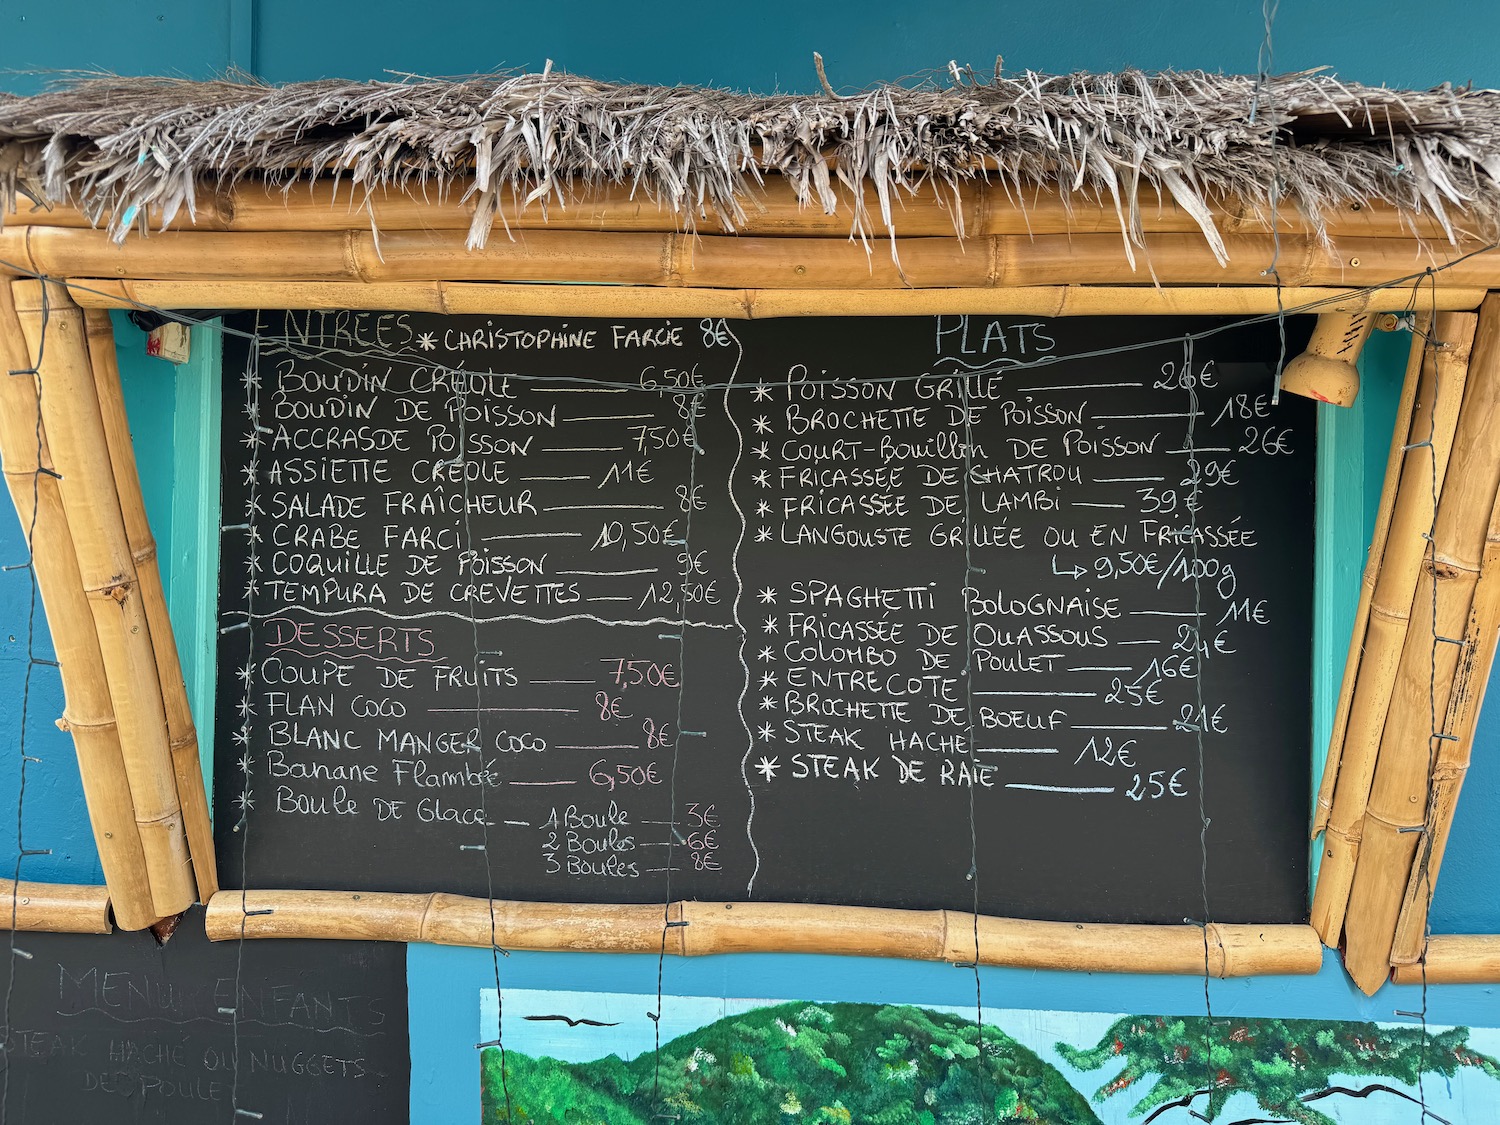 ENTRÉES * CHRISTOPHINE FARCIE 8€
* BOUDIN CRÉOLE 6,50€
* BOUDIN DE POISSON 8€
* ACCRAS DE POISSON 7,50€
* ASSIETTE CRÉOLE 11€
* SALADE FRAÎCHEUR 8€
* CRABE FARCI 10,50€
* COQUILLE DE POISSON 9€
* TEMPURA DE CREVETTES 12,50€
DESSERTS
* COUPE DE FRUITS 7,50€
* FLAN COCO 8€
* BLANC MANGER COCO 8€
* Banane Flambée 6,50€
* Boule DE Glace 1 Boule 3€
2 Boules 6€
3 Boules 8€
PLATS
* POISSON GRILLÉ 26€
* BROCHETTE DE POISSON 18€
* COURT-BOUILLON DE POISSON 26€
* FRICASSÉE DE CHATROU 29€
* FRICASSÉE DE LAMBI 39,€
* LANGOUSTE GRILLÉE OU EN FRICASSÉE
↳ 9,50€/100g
* SPAGHETTI BOLOGNAISE 11€
* FRICASSÉE DE OUASSOUS 24€
* COLOMBO DE POULET 16€
* ENTRECOTE 25€
* BROCHETTE DE BOEUF 21€
* STEAK HACHE 12€
* STEAK DE RAIE 25€
MENU ENFANTS
STEAK HACHÉ OU NUGGETS
DE POULE